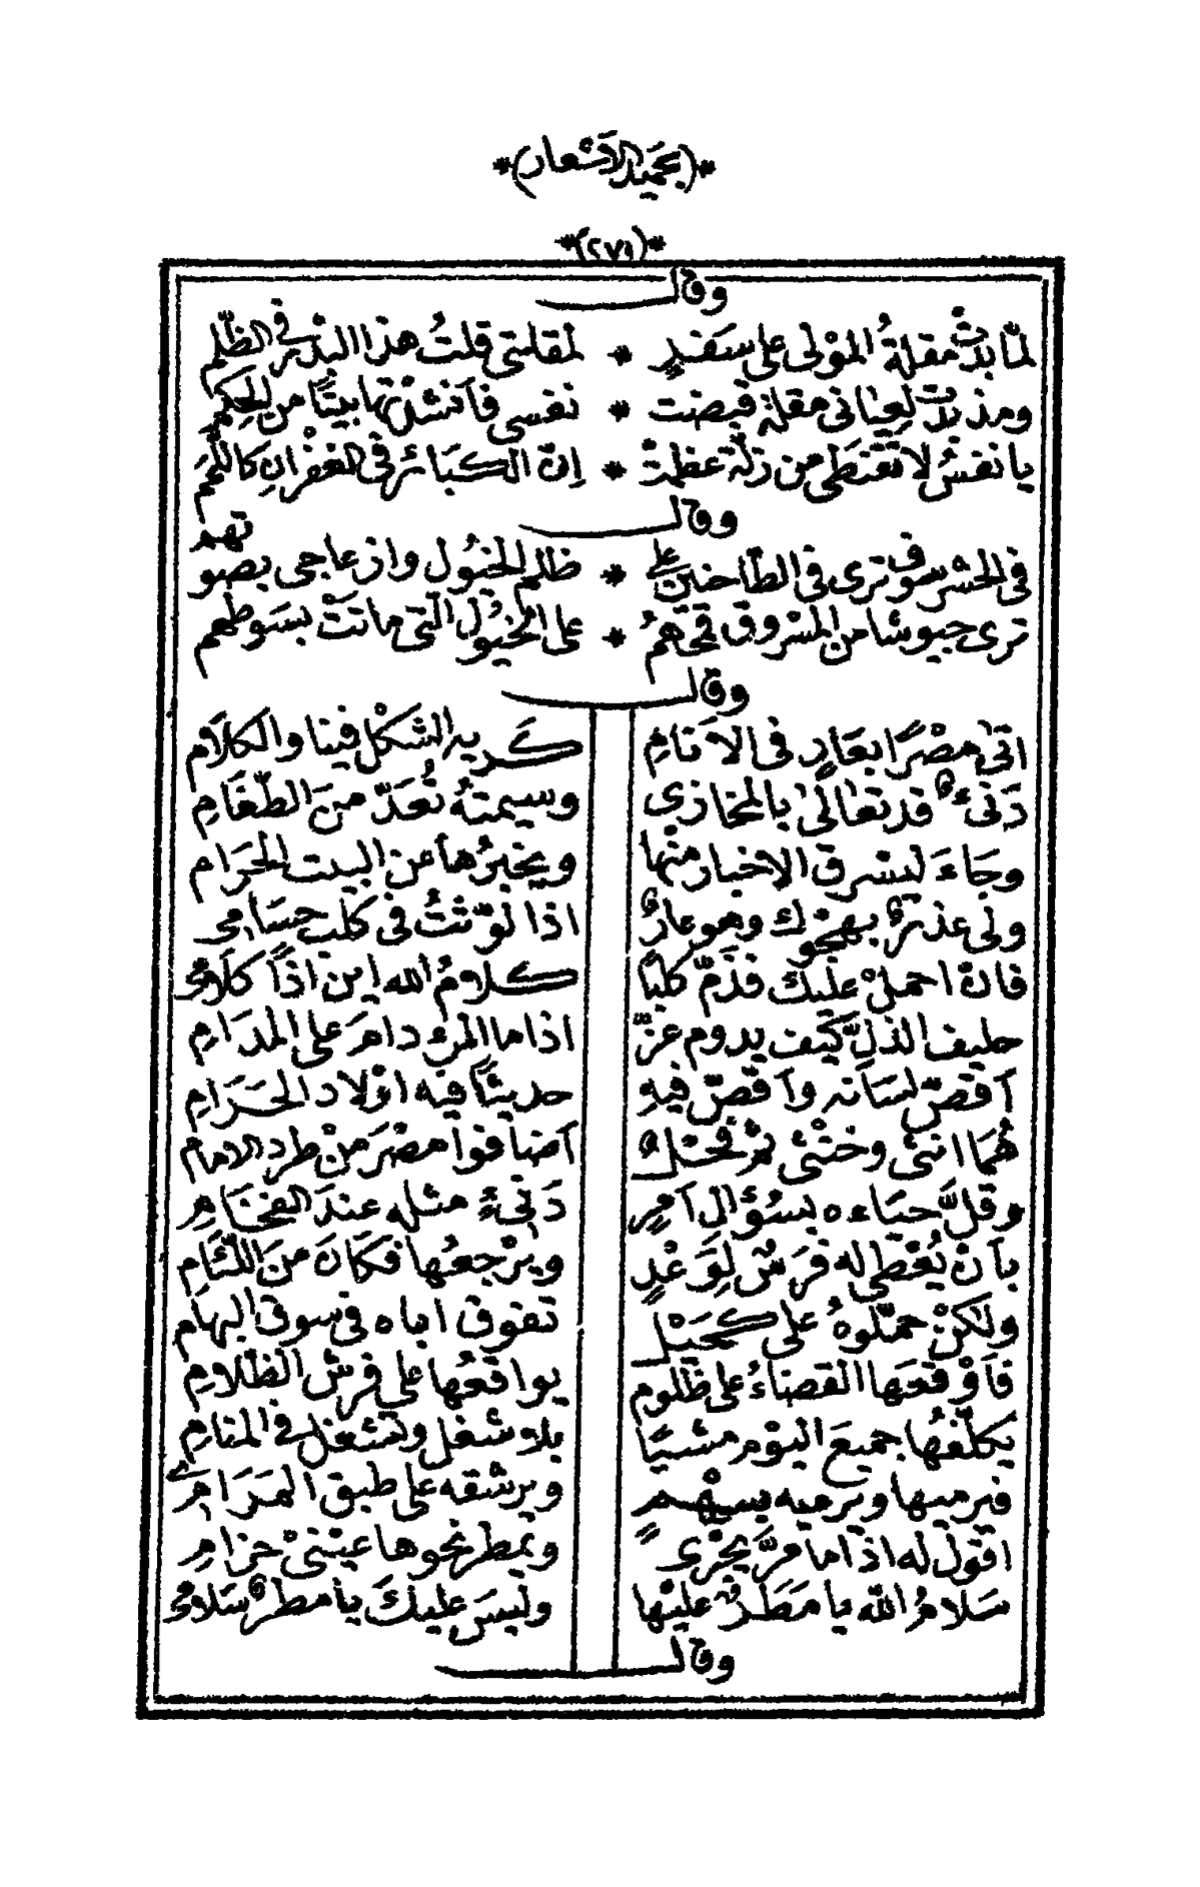 *(بحميد الاشعار)*
*(٢٧١)*
وقال
لمّا بدتْ مقلةُ المَوْلى على سَفَدٍ * لمقلتي قلتُ هذا البدْرُ في الظّلم
ومذ بدت لعياني مقلة قبضت * نفسي فآنشدْتها بيتًا من الحِكمِ
يا نفسُ لا تقنطى من زلّة عظمتْ * اِنّ الكبَائرَ في الغفْرانِ كاللّمَمِ
وقال
في الحشر سوف ترى في الطّاحنين على * ظلم الخيُول وازعاجى بصوتهم
ترى جيوشا من المسْروق قمحَهمُ * على الخيُول التي ماتتْ بسَوطهم
وقال
اتىٰ مصْرًا بعَارٍ في الاَنامِ كَريه الشكْل فينا والكلاَمِ
دَنىءٌ قد تعالىٰ بالمخازى وسيمتهُ تُعَدّ منَ الطّغَامِ
وجَاءَ ليسْرق الاخبار منْها ويخبرُها عن البيت الحَرَام
ولى عذرٌ بهجْوك وهو عارٌ اذا لوّثتُ في كلب حسَامى
فانْ احملْ عليك فذَمّ كلبًا كلامُ الله اين اذًا كلاَمى
حليف الذلِّ كَيف يدوم عزّ اذا ما المرء دامَ على المدَامِ
آقصّ لسَانه وآقصّ فيهِ حديثًا فيه اوْلاد الحَرَامِ
هُمَا انثى وخنْثى ثمّ فحْلٌ آضافوا مصْرَ منْ طرد الامام
وقلَّ حيَاءه بسُؤال آمرٍ دَنىءُ مثله عندَ الفخَامِ
بآنْ يُعْطى له فرَسٌ لِوَغْدٍ ويرْجعُها فكَانَ منَ اللّئَامِ
ولٰكنْ حمّلوهُ على كحَيْل تفوق اباه في سوق البهام
فآوْقعَها القضاءُ على ظلوم يواقعُها على فرش الظلامِ
يكلّفُها جميعَ اليَوْم مشيًا بلا شغل وتشغل في المنامِ
فيرميها ويرميه بسهْمٍ ويرشقه على طبق المَرَامِى
اقول له اذا ما مرَّ يجْرى ويمطر نحوها عيْنىْ حزامِ
سَلامُ اللّه يا مَطَرٌ عليْها وليسَ عليكَ يا مطرُ سَلامُ
وقال